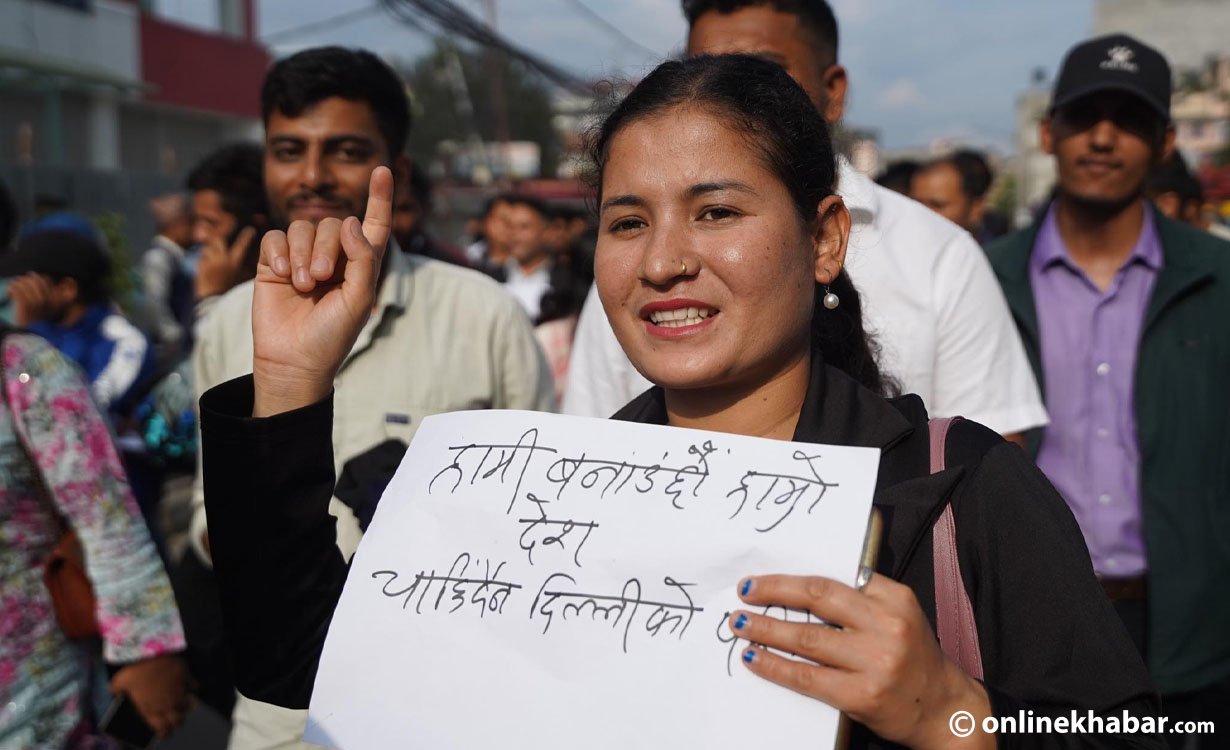 हामी बनाउंछौं हाम्रो
देश
चाहिंदैन दिल्लीको
© onlinekhabar.com